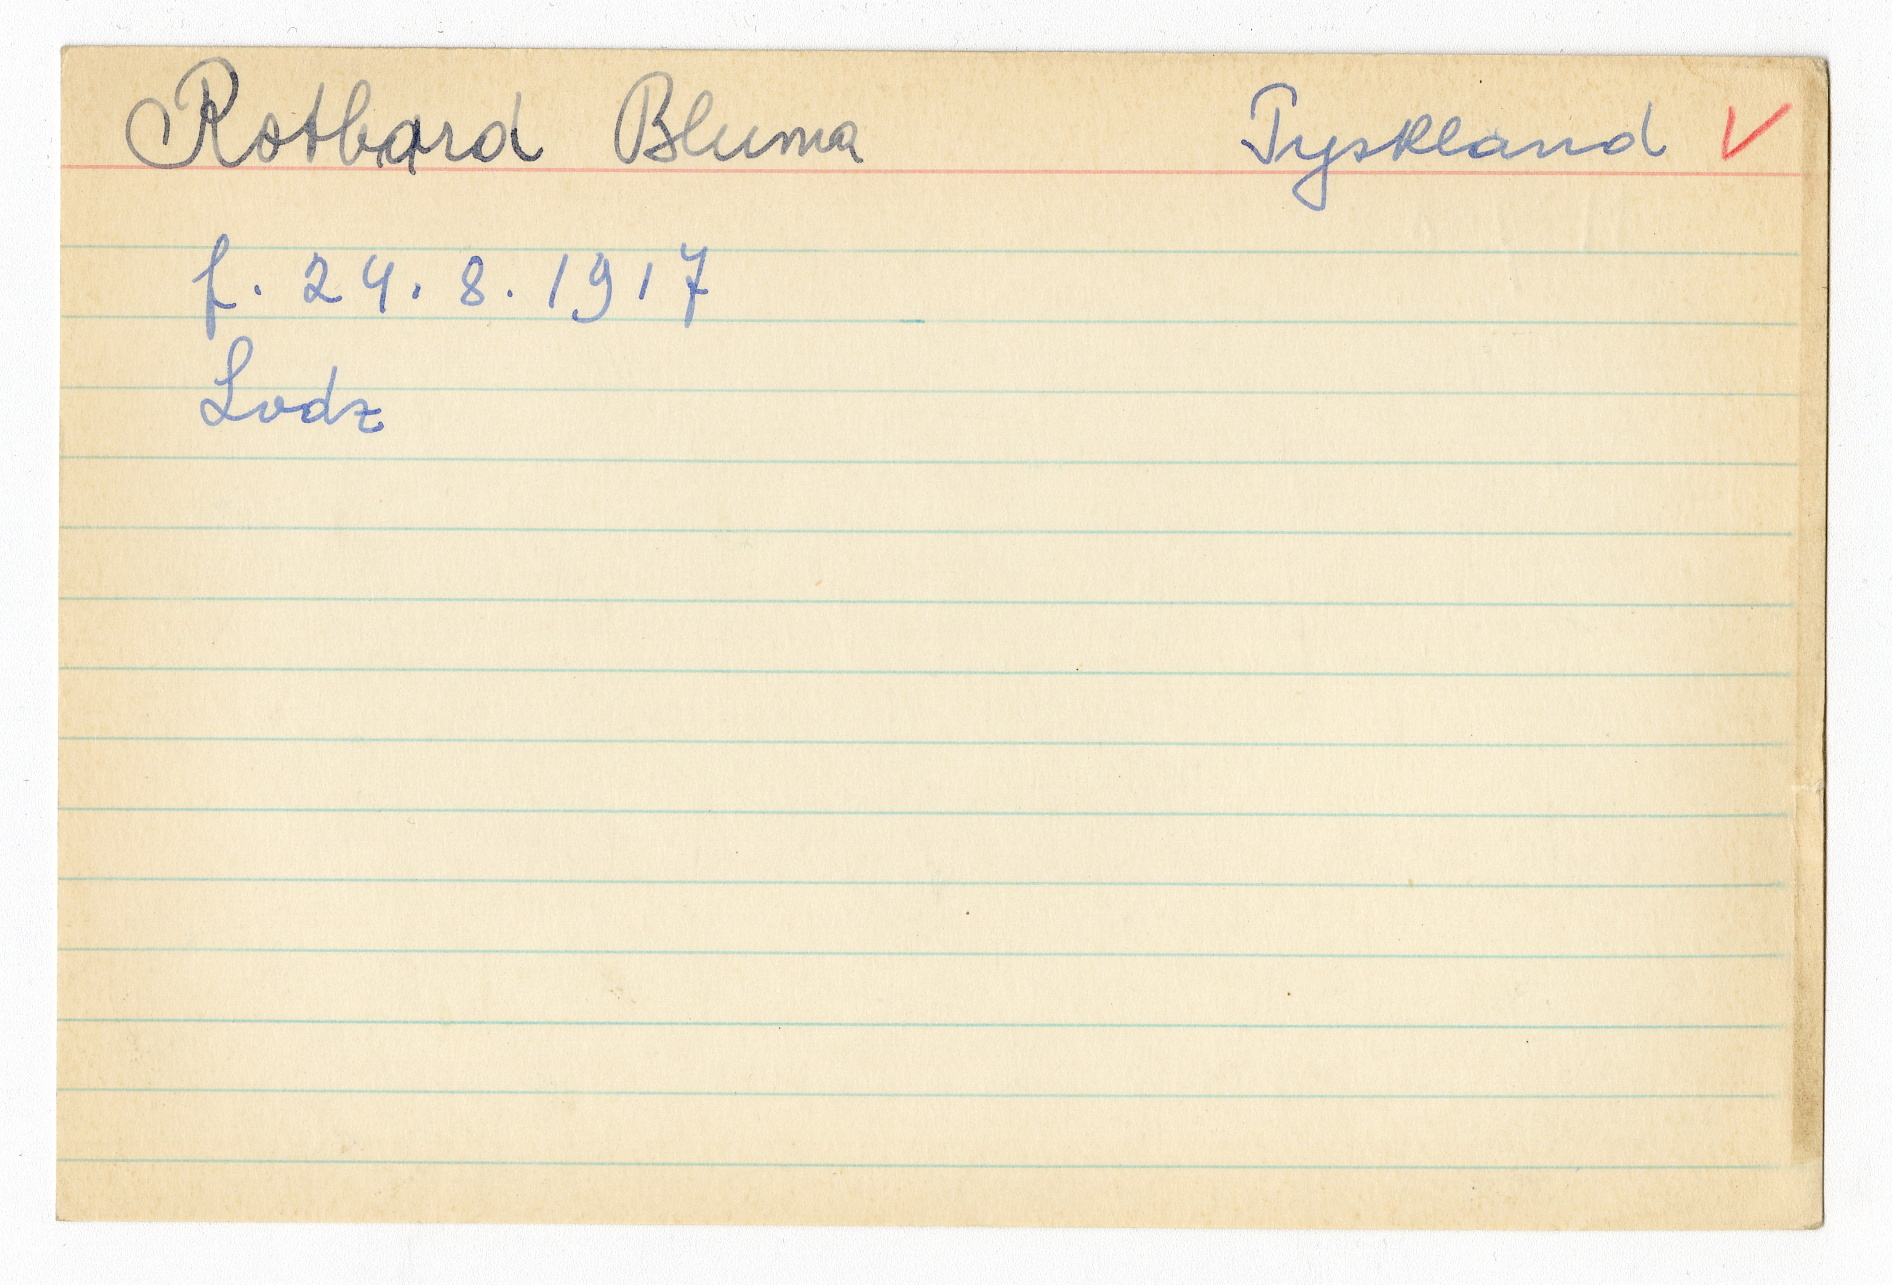 Rotbard Bluma Tyskland V
f. 24. 8. 1917
Lodz